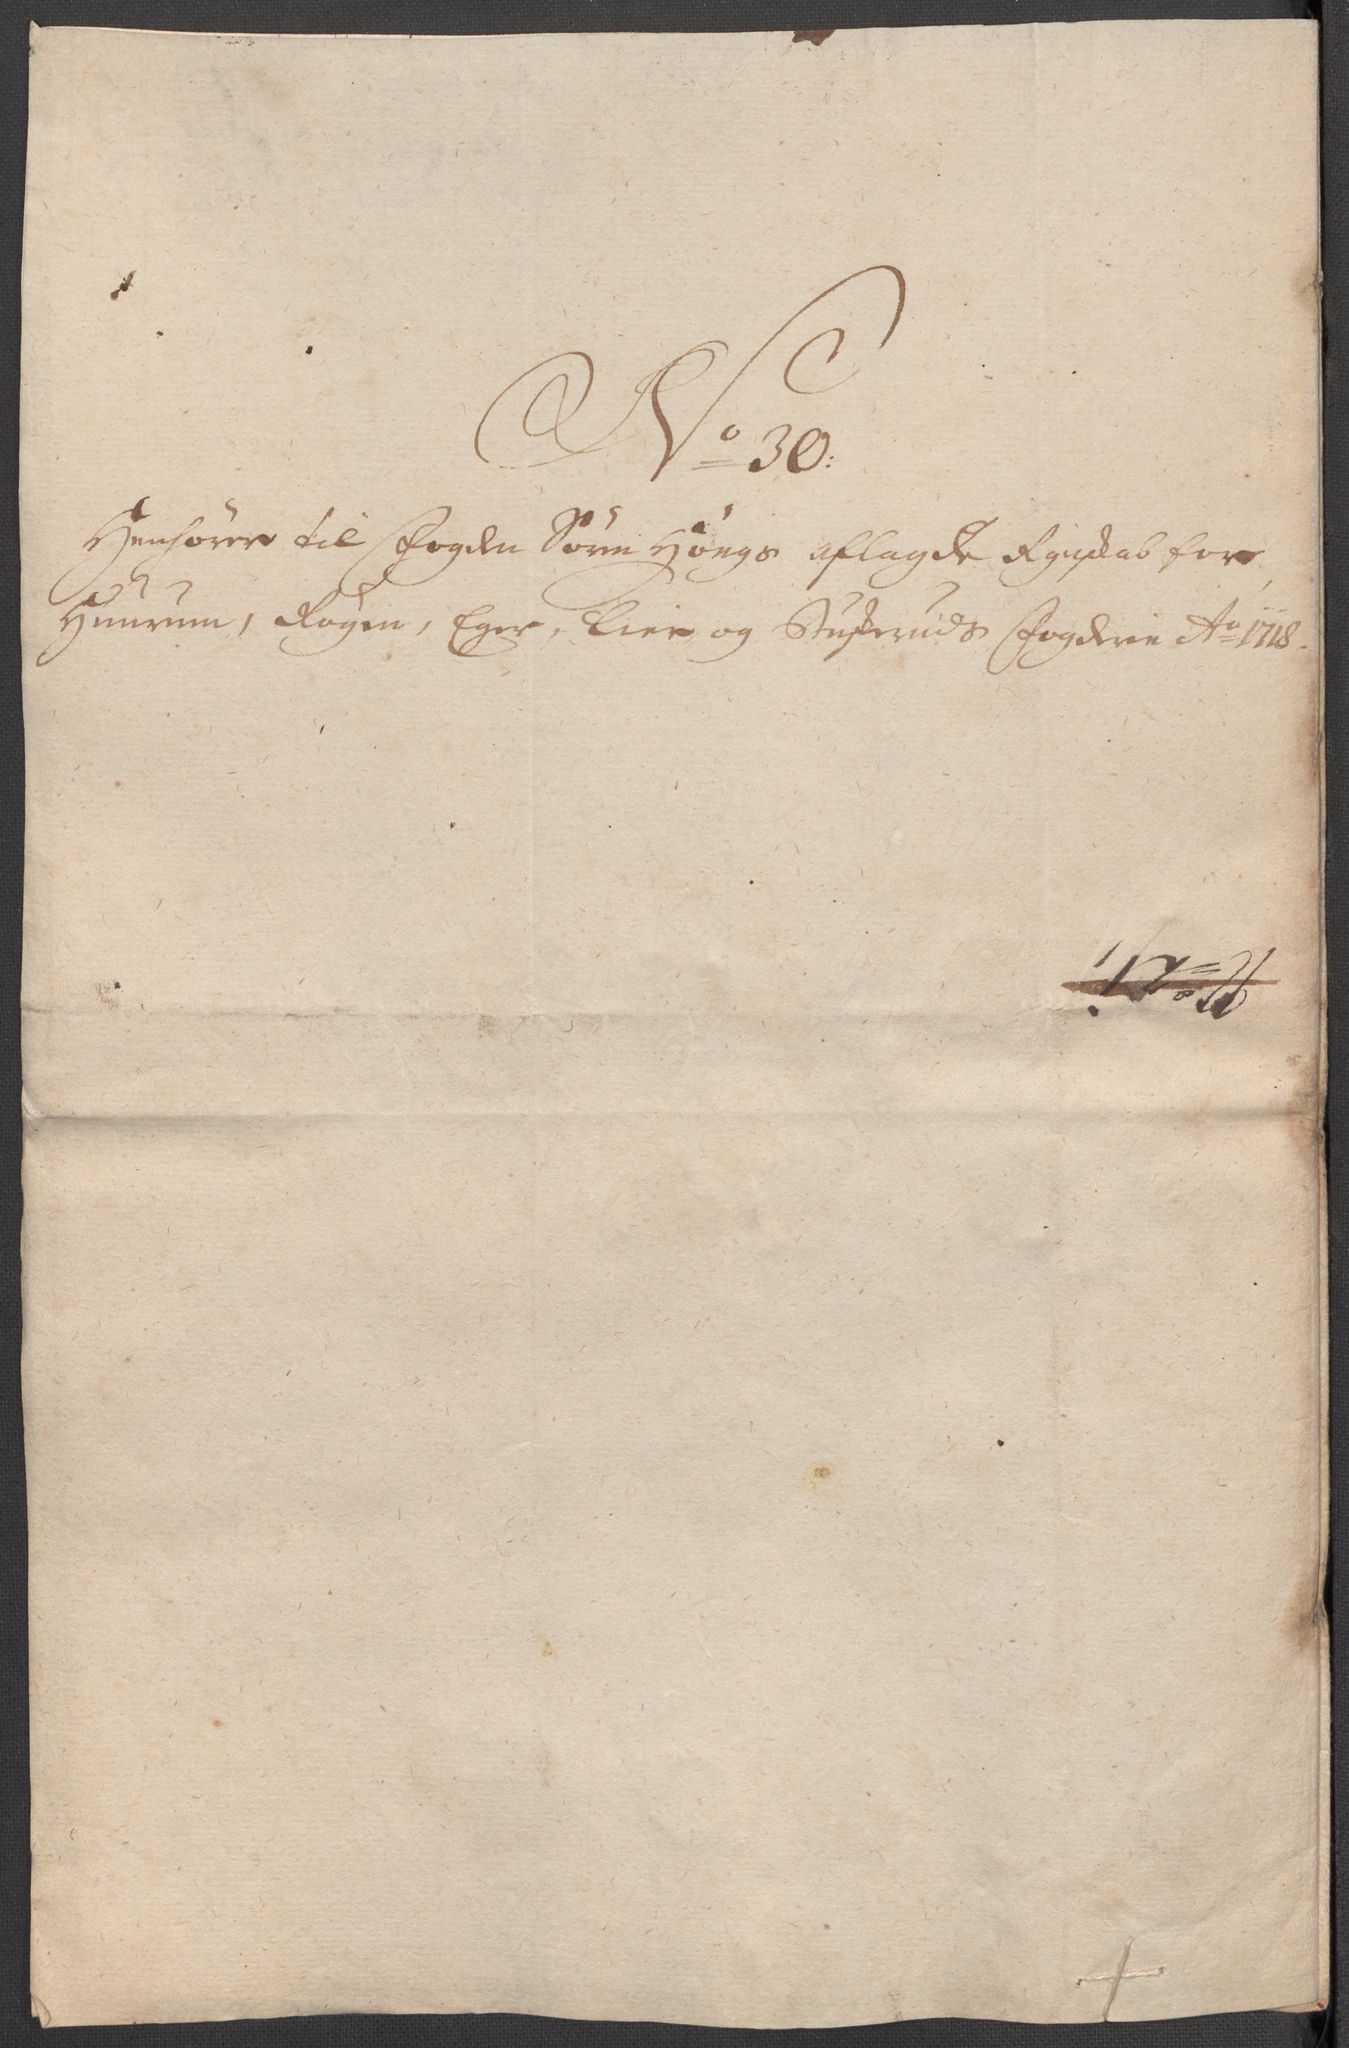 No 30:
Henhörer til Fogden Sörn Höegs aflagde Rgnskab for
Huurum, Röȳen, Eger, Lier og Buskeruds Fogderie Ao 1718.